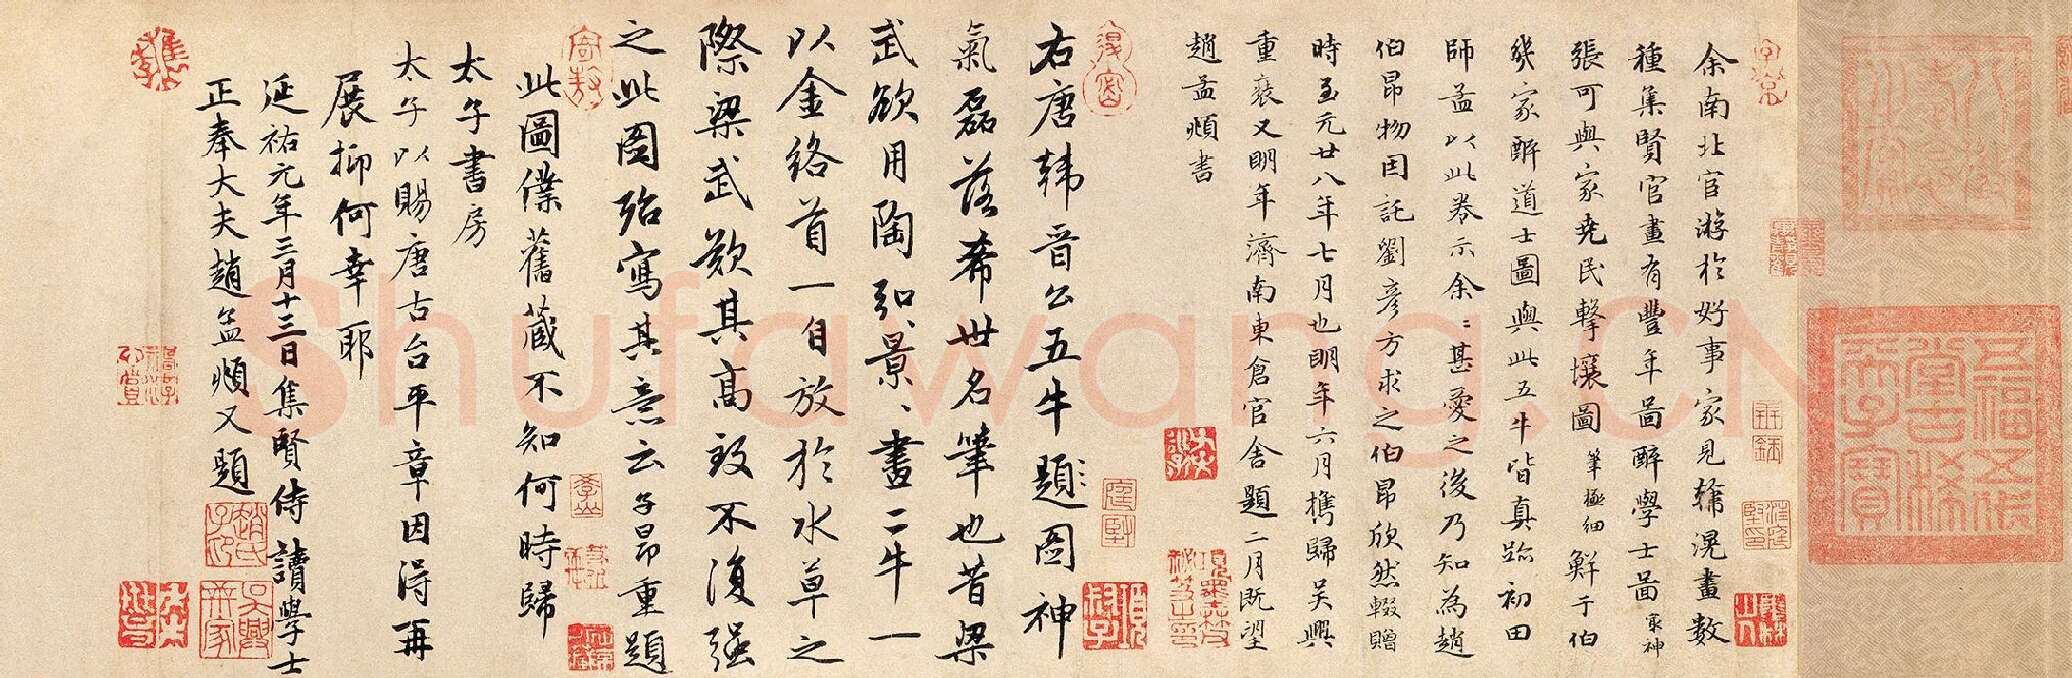 余南北官游於好事家見韓滉畫數
種集賢官畫有豐年啚醉學士啚最神
張可與家堯民擊壤圖筆極細鮮于伯
幾家醉道士圖與此五牛皆真跡初田
師孟以此卷示余〻甚愛之後乃知為趙
伯昂物因託劉彥方求之伯昂欣然輟贈
時至元廿八年七月也明年六月攜歸吴興
重裝又明年濟南東倉官舍題二月既望
趙孟頫書
右唐韩晋公五牛啚神
氣磊落希世名筆也昔梁
武欲用陶弘景〻畫二牛一
以金络首一自放於水草之
際梁武歎其高致不復强
之此啚殆寫其意云子昂重題
此圖僕舊蔵不知何時歸
太子書房
太子以賜唐古台平章因得再
展抑何幸耶
延祐元年三月十三日集賢侍讀學士
正奉大夫趙孟頫又題
五福五代堂古稀天子寶
八徵耄念之寶
趙氏子昂
Shufawang.CN